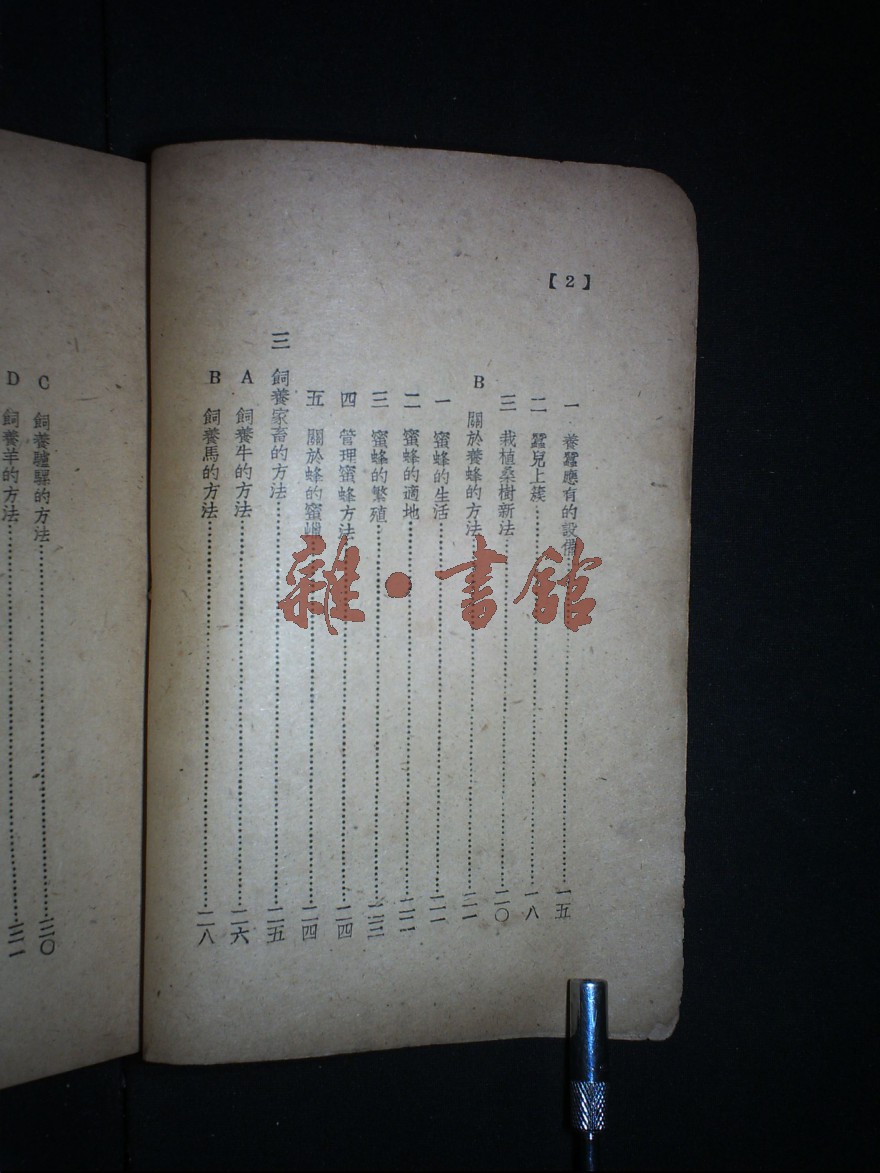 【2】
一 養蠶應有的設備……一五
二 蠶兒上簇……一八
三 栽植桑樹新法……二〇
B 關於養蜂的方法……二一
一 蜜蜂的生活……二一
二 蜜蜂的適地……二二
三 蜜蜂的繁殖……二三
四 管理蜜蜂方法……二四
五 關於蜂的蜜蠟……二四
三 飼養家畜的方法……二五
A 飼養牛的方法……二六
B 飼養馬的方法……二八
C 飼養驢騾的方法……三〇
D 飼養羊的方法……三一
雜·書館